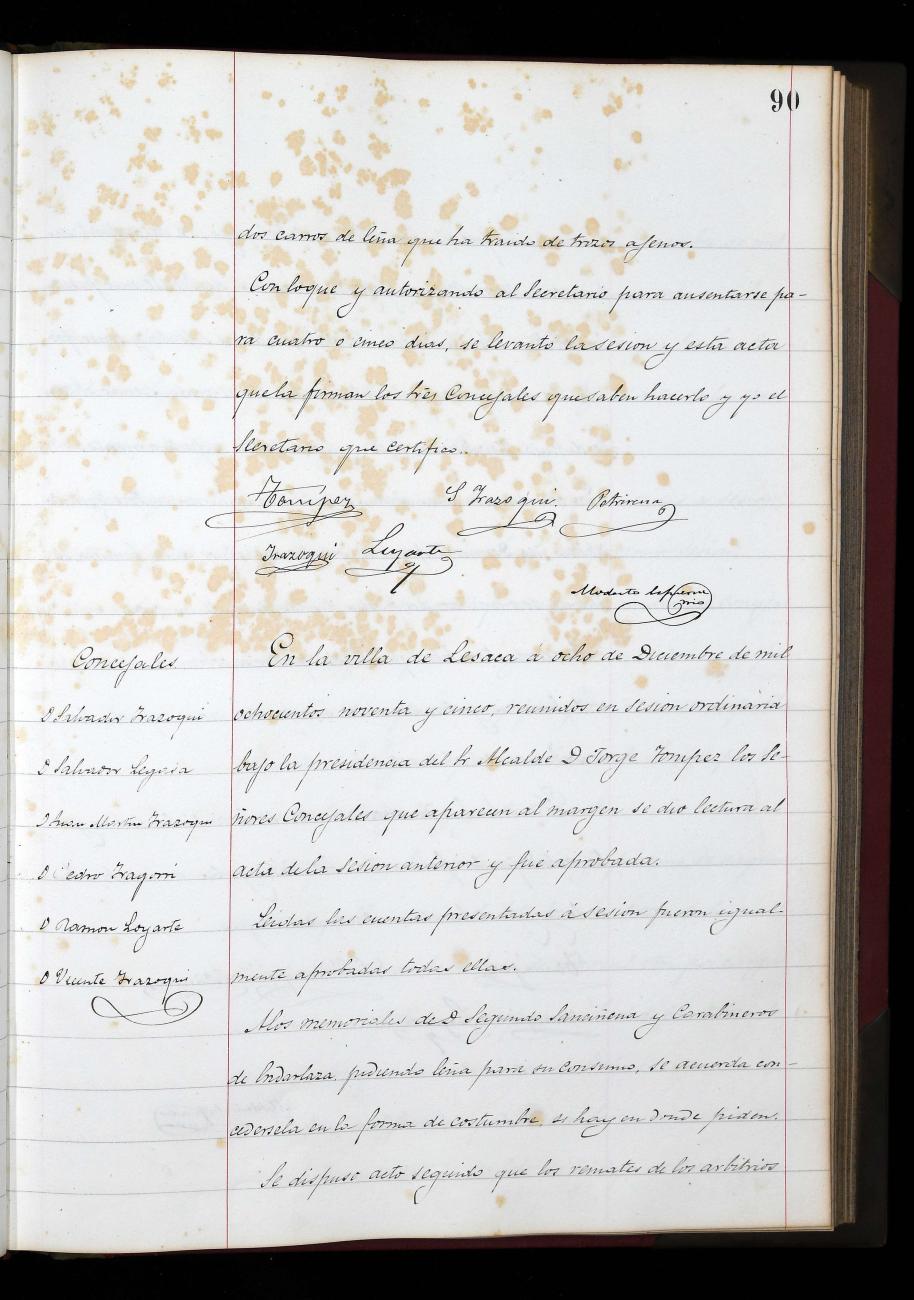 90
dos carros de leña que ha traido de trozos ajenos.
Con loque y autorizando al Secretario para ausentarse pa-
ra cuatro o cinco dias, se levantó la sesion y esta acta
que la firman los tres Concejales que saben hacerlo y yo el
Secretario que certifico.
Tompez S Irazoqui. Petrirena
Irazoqui Loyarte
Modesto
Concejales
D Salvador Irazoqui
D Salvador Legasa
D Juan Martin Irazoqui
D Pedro Iragorri
D Ramon Loyarte
D Vicente Irazoqui
En la villa de Lesaca á ocho de Diciembre de mil
ochocientos noventa y cinco, reunidos en sesion ordinaria
bajo la presidencia del Sr Alcalde D Jorge Tompez los Se-
ñores Concejales que aparecen al margen se dio lectura al
acta de la sesion anterior y fue aprobada.
Leidas las cuentas presentadas á sesion fueron igual-
mente aprobadas todas ellas.
A los memoriales de D Segundo Sanciñena y Carabineros
de Endarlaza, pidiendo leña para su consumo, se acuerda con-
cedersela en la forma de costumbre, si hay en donde piden.
Se dispuso acto seguido que los remates de los arbitrios